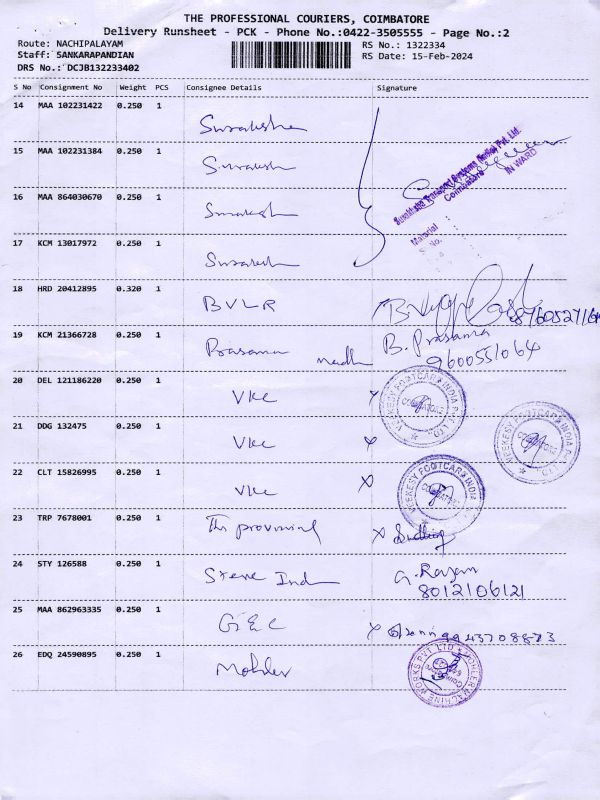 THE PROFESSIONAL COURIERS, COIMBATORE
Delivery Runsheet - PCK - Phone No.:0422-3505555 - Page No.:2
Route: NACHIPALAYAM
RS No.: 1322334
Staff: SANKARAPANDIAN
RS Date: 15-Feb-2024
DRS No.: DCJB132233402
S No Consignment No Weight PCS Consignee Details Signature
14 MAA 102231422 0.250 1
15 MAA 102231384 0.250 1
Coimbatore
IN WARD
Material
16 MAA 864030670 0.250 1
17 KCM 13017972 0.250 1
18 HRD 20412895 0.320 1 BVLR
19 KCM 21366728 0.250 1 Prasanna B. Prasanna
9600551064
20 DEL 121186220 0.250 1 VKC
VEEKESY FOOTCARE INDIA PVT LTD
21 DDG 132475 0.250 1 VKC
VEEKESY FOOTCARE INDIA PVT LTD
22 CLT 15826995 0.250 1 VKC
VEEKESY FOOTCARE INDIA PVT LTD
23 TRP 7678001 0.250 1 The provinial
24 STY 126588 0.250 1 G. Rajan
8012106121
25 MAA 862963335 0.250 1 GEC 9943708873
26 EDQ 24590895 0.250 1 Mohler
MOHLER MACHINE WORKS PVT LTD